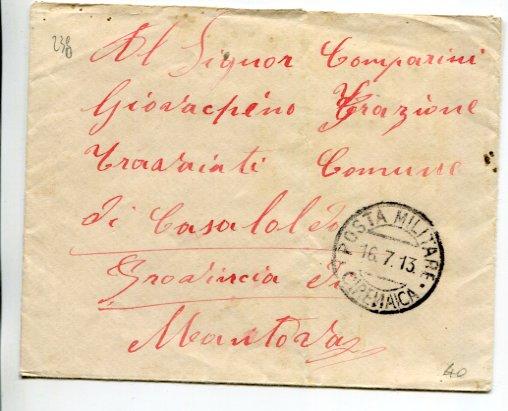 238
Al Signor Comparini
Giovacpino Frazione
Travaiati Comune
di Casaloldo
Provincia di
Mantova
POSTA MILITARE
16.7.13.
CIRENAICA
40